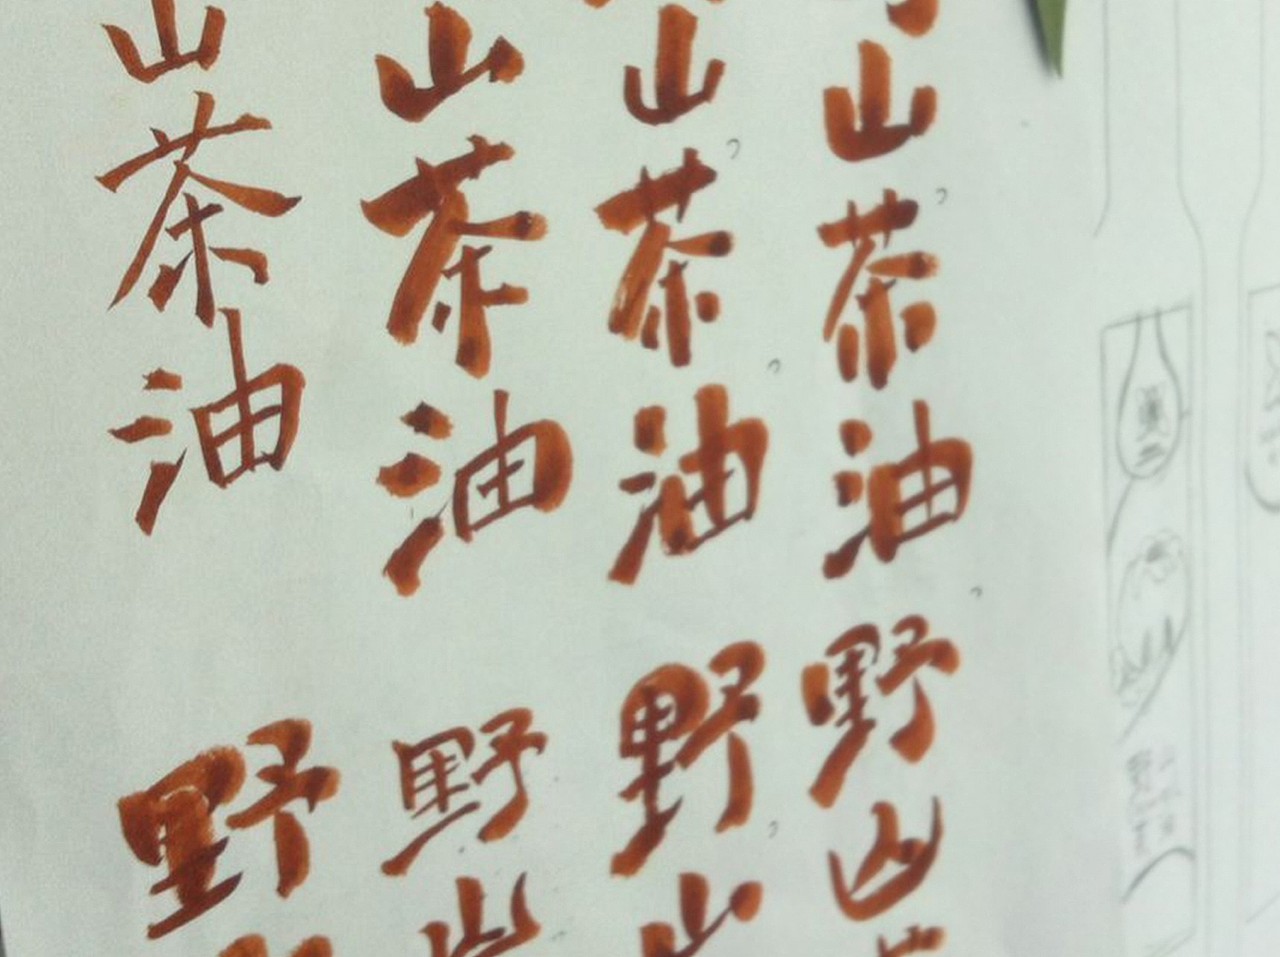 山茶油
野山
山茶油
野山
山茶油
野山
山茶油
野